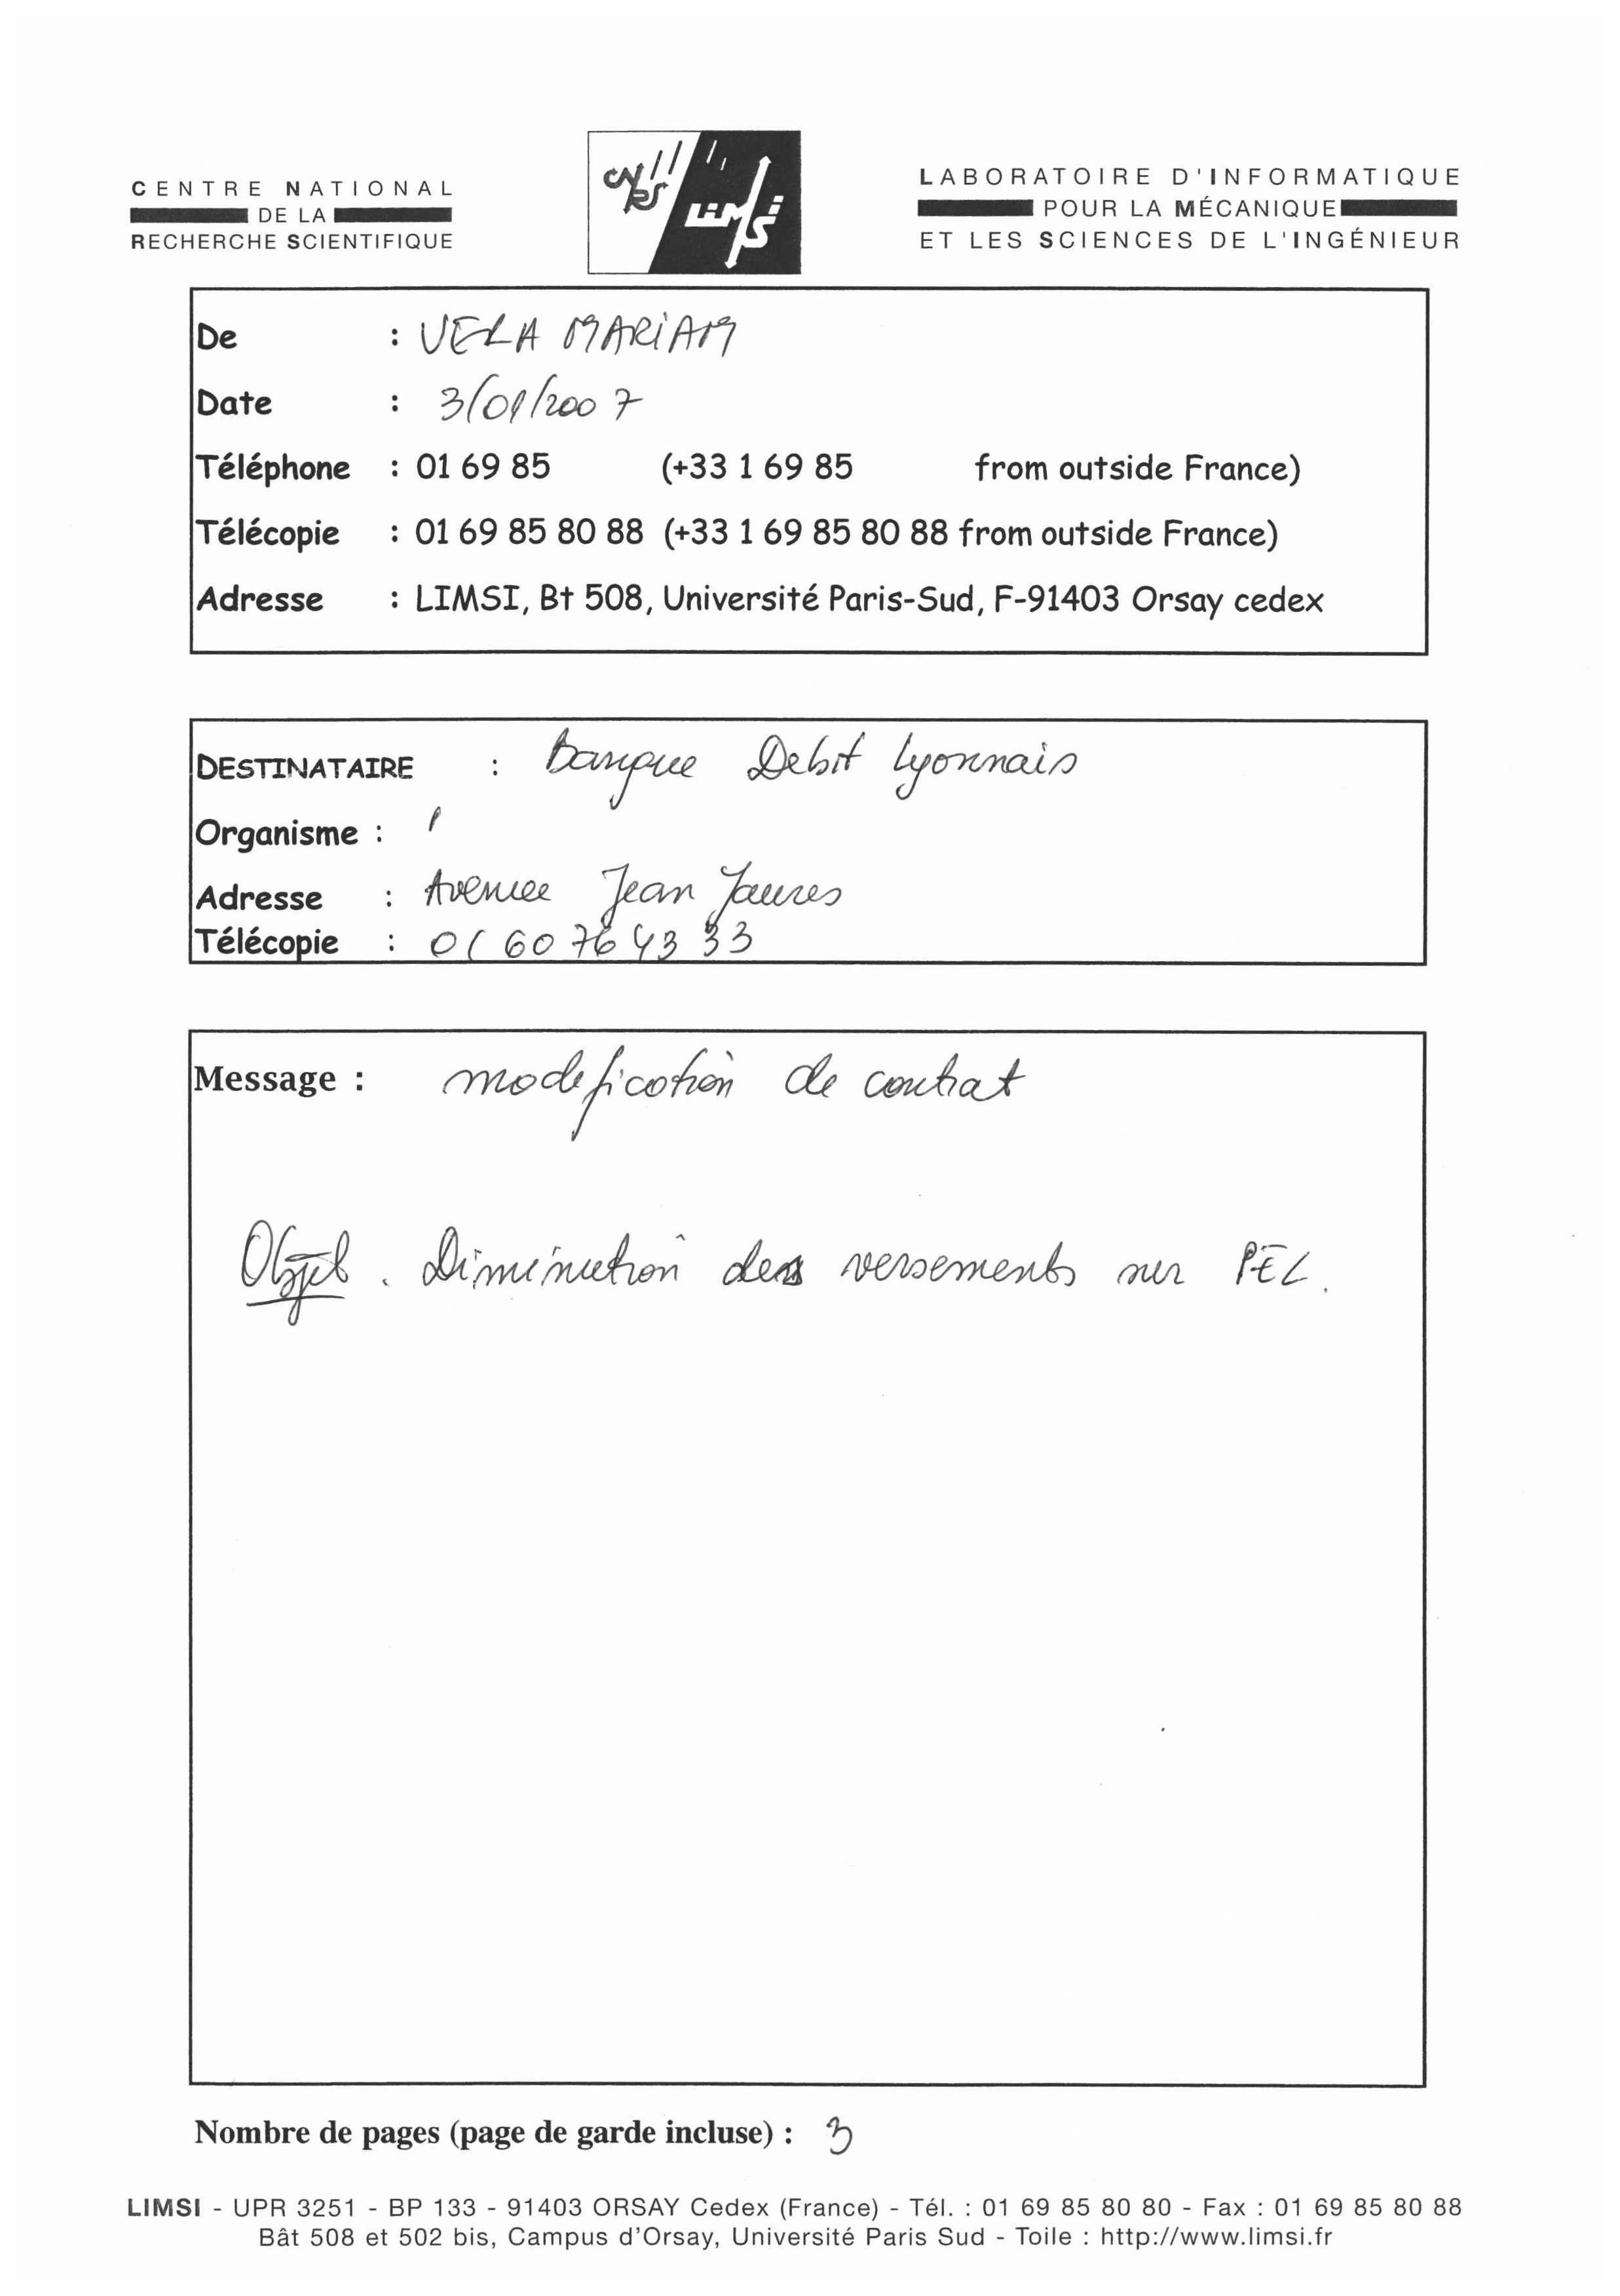 CENTRE NATIONAL
DE LA
RECHERCHE SCIENTIFIQUE
cnrs
LIMSI
LABORATOIRE D'INFORMATIQUE
POUR LA MÉCANIQUE
ET LES SCIENCES DE L'INGÉNIEUR
De : VELA MARiAM
Date : 3/01/2007
Téléphone : 01 69 85 (+33 1 69 85 from outside France)
Télécopie : 01 69 85 80 88 (+33 1 69 85 80 88 from outside France)
Adresse : LIMSI, Bt 508, Université Paris-Sud, F-91403 Orsay cedex
DESTINATAIRE : Banque Debit Lyonnais
Organisme :
Adresse : Avenue Jean Jaures
Télécopie : 01 60 76 43 33
Message : modification de contrat
Objet . Diminution des versements sur PEL.
Nombre de pages (page de garde incluse) : 3
LIMSI - UPR 3251 - BP 133 - 91403 ORSAY Cedex (France) - Tél. : 01 69 85 80 80 - Fax : 01 69 85 80 88
Bât 508 et 502 bis, Campus d'Orsay, Université Paris Sud - Toile : http://www.limsi.fr